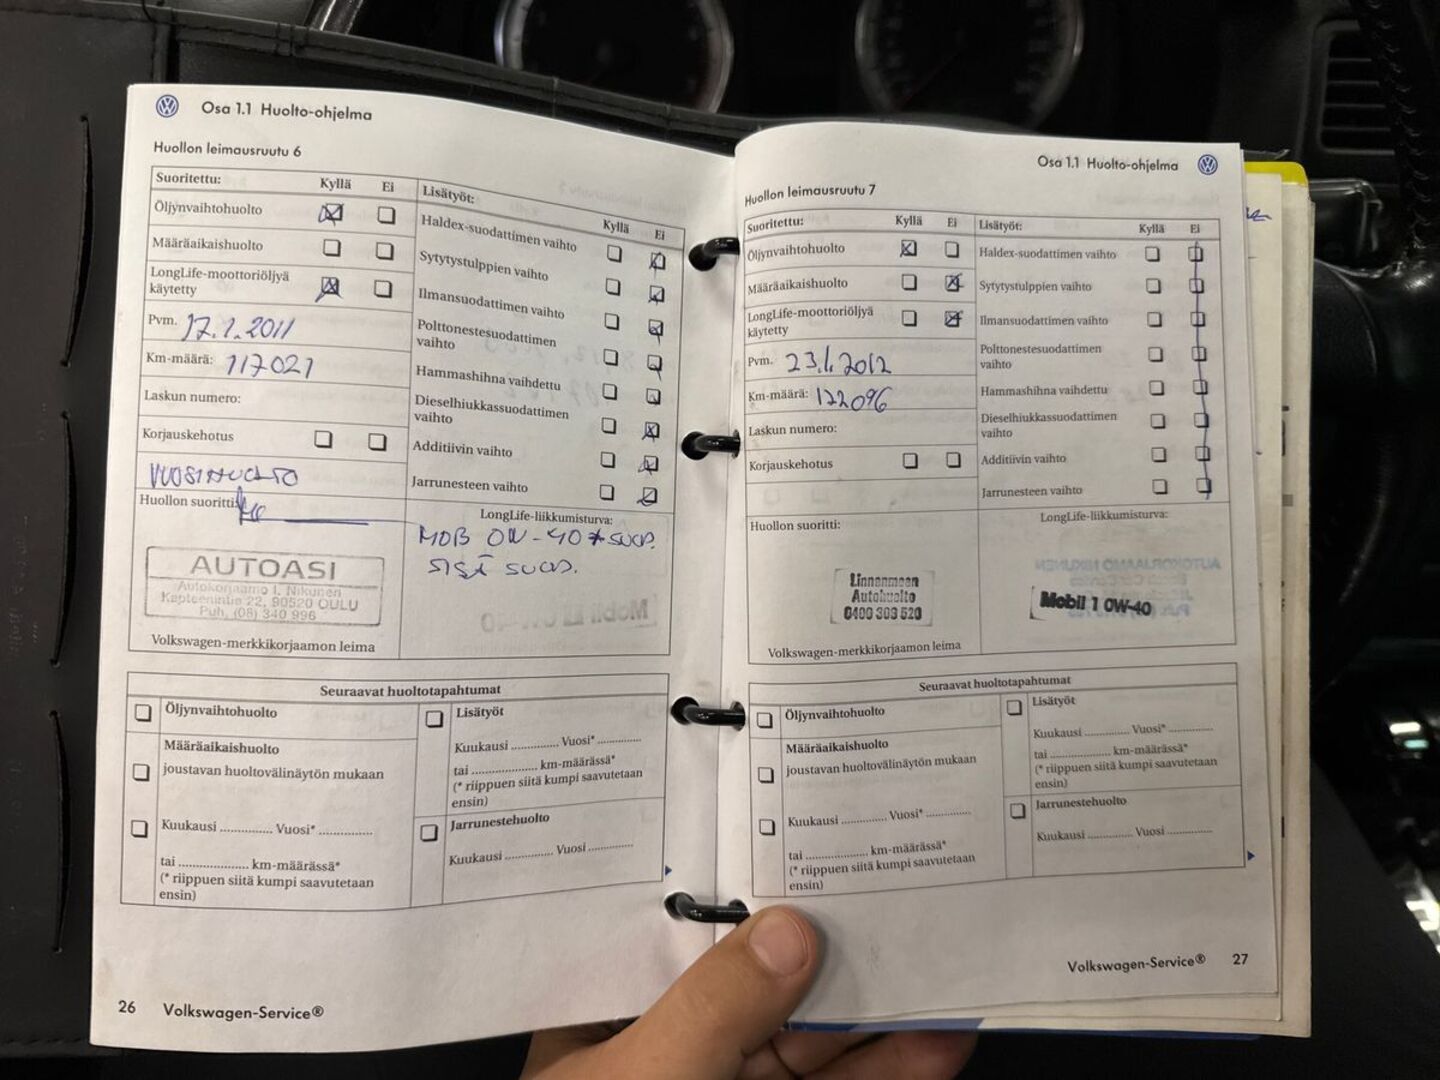 Osa 1.1 Huolto-ohjelma
Huollon leimausruutu 6
Suoritettu: Kyllä Ei
Öljynvaihtohuolto
Määräaikaishuolto
LongLife-moottoriöljyä
käytetty
Pvm. 17.1.2011
Km-määrä: 117021
Laskun numero:
Korjauskehotus
VUOSIHUOLTO
Huollon suoritti:
AUTOASI
Autokorjaamo I. Nikunen
Kapteenintie 22, 90520 OULU
Puh. (08) 340 996
Volkswagen-merkkikorjaamon leima
Lisätyöt: Kyllä Ei
Haldex-suodattimen vaihto
Sytytystulppien vaihto
Ilmansuodattimen vaihto
Polttonestesuodattimen
vaihto
Hammashihna vaihdettu
Dieselhiukkassuodattimen
vaihto
Additiivin vaihto
Jarrunesteen vaihto
LongLife-liikkumisturva:
MOB 0W-40 + SUOD.
SISÄ SUOD.
Seuraavat huoltotapahtumat
Öljynvaihtohuolto
Määräaikaishuolto
joustavan huoltovälinäytön mukaan
Kuukausi ............... Vuosi* ...............
tai .................... km-määrässä*
(* riippuen siitä kumpi saavutetaan
ensin)
Lisätyöt
Kuukausi .............. Vuosi* .............
tai .................... km-määrässä*
(* riippuen siitä kumpi saavutetaan
ensin)
Jarrunestehuolto
Kuukausi .............. Vuosi ..............
26 Volkswagen-Service®
Osa 1.1 Huolto-ohjelma
Huollon leimausruutu 7
Suoritettu: Kyllä Ei
Öljynvaihtohuolto
Määräaikaishuolto
LongLife-moottoriöljyä
käytetty
Pvm. 23.1.2012
Km-määrä: 122096
Laskun numero:
Korjauskehotus
Huollon suoritti:
Linnanmaan
Autohuolto
0400 303 520
Volkswagen-merkkikorjaamon leima
Lisätyöt: Kyllä Ei
Haldex-suodattimen vaihto
Sytytystulppien vaihto
Ilmansuodattimen vaihto
Polttonestesuodattimen
vaihto
Hammashihna vaihdettu
Dieselhiukkassuodattimen
vaihto
Additiivin vaihto
Jarrunesteen vaihto
LongLife-liikkumisturva:
Mobil 1 0W-40
Seuraavat huoltotapahtumat
Öljynvaihtohuolto
Määräaikaishuolto
joustavan huoltovälinäytön mukaan
Kuukausi .............. Vuosi* ..............
tai ................... km-määrässä*
(* riippuen siitä kumpi saavutetaan
ensin)
Lisätyöt
Kuukausi .............. Vuosi* .............
tai ................... km-määrässä*
(* riippuen siitä kumpi saavutetaan
ensin)
Jarrunestehuolto
Kuukausi .............. Vuosi ..............
Volkswagen-Service® 27